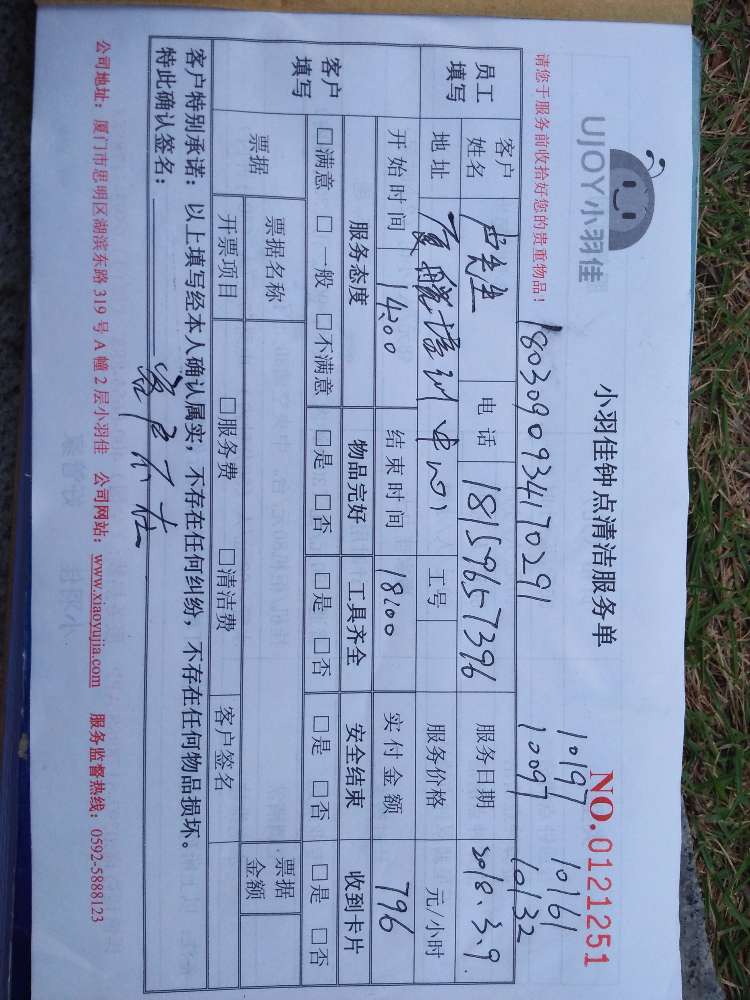 UJOY小羽佳
小羽佳钟点清洁服务单
NO.0121251
10197 10161
10097 10132
请您于服务前收拾好您的贵重物品！
18030909341 70291
员工填写 客户姓名 卢先生 电话 18159657396 服务日期 2018.3.9.
地址 培训中心 工号 服务价格 元/小时
开始时间 14:00 结束时间 18:00 实付金额 796
客户填写 服务态度 物品完好 工具齐全 安全结束 收到卡片
□满意 □一般 □不满意 □是 □否 □是 □否 □是 □否 □是 □否
票据 票据名称 票据金额
开票项目 □服务费 □清洁费 客户签名
客户特别承诺：以上填写经本人确认属实，不存在任何纠纷，不存在任何物品损坏。
特此确认签名：
公司地址：厦门市思明区湖滨东路 319 号 A 幢 2 层小羽佳 公司网站：www.xiaoyujia.com 服务监督热线：0592-5888123